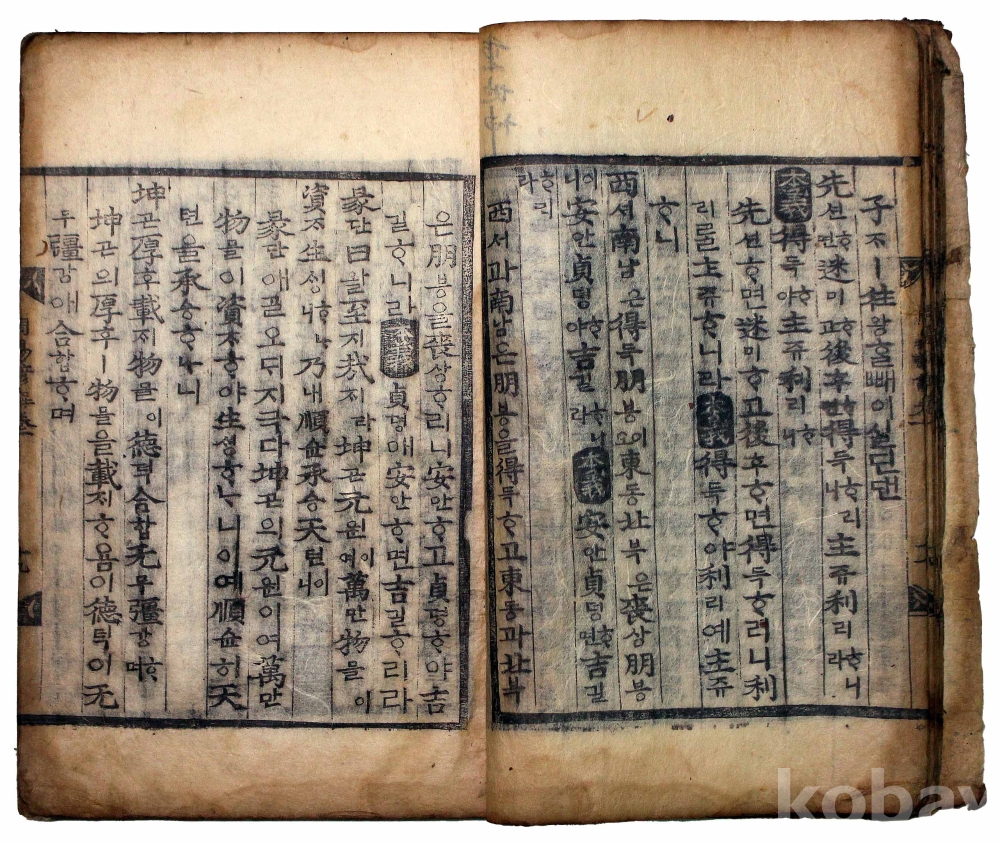 子ᄌᆞㅣ往왕홀빼이실띤댄
先션ᄒᆞ면迷미ᄒᆞ고後후ᄒᆞ면得득ᄒᆞ리니主쥬利리ᄒᆞ니라
本義得득ᄒᆞ야主쥬利리ᄒᆞ니
先션ᄒᆞ면迷미ᄒᆞ고後후ᄒᆞ면得득ᄒᆞ려니利
리ᄅᆞᆯ主쥬ᄒᆞ니라本義得득ᄒᆞ야利리예主쥬
ᄒᆞ니
西셔南남은得득朋붕이오東동北북은喪상朋붕
이니安안貞뎡ᄒᆞ야吉길ᄒᆞ니라本義安안貞뎡ᄒᆞ면吉길
ᄒᆞ리라
西셔과南남은朋붕을得득ᄒᆞ고東동과北북
은朋붕을喪상ᄒᆞ리니安안ᄒᆞ고貞뎡ᄒᆞ야吉
길ᄒᆞ니라本義貞뎡애安안ᄒᆞ면吉길ᄒᆞ리라
彖단曰왈至지哉ᄌᆡ라坤곤元원이여萬만物믈이
資ᄌᆞ生ᄉᆡᆼᄒᆞᄂᆞ니乃내順슌承승天텬이니
彖단애ᄀᆞᆯ오ᄃᆡ지극다坤곤의元원이여萬만
物믈이資ᄌᆞᄒᆞ야生ᄉᆡᆼᄒᆞᄂᆞ니이예順슌히天
텬을承승ᄒᆞᄂᆞ니
坤곤厚후載ᄌᆡ物믈이德덕合합无무疆강ᄒᆞ며
坤곤의厚후ㅣ物믈을載ᄌᆡᄒᆞ옴이德덕이无
무疆강애合합ᄒᆞ며
kobay